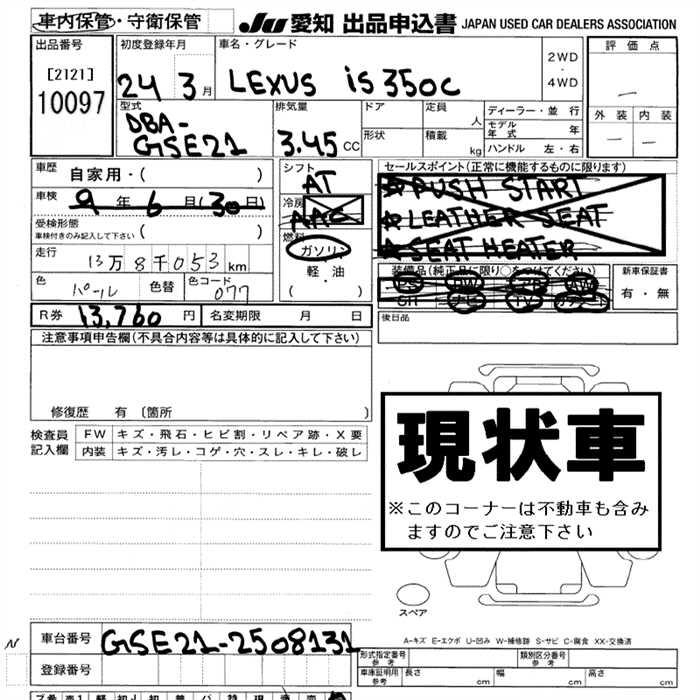 車内保管・守衛保管
JU 愛知 出品申込書 JAPAN USED CAR DEALERS ASSOCIATION
出品番号
[2121]
10097
初度登録年月
24 3月
車名・グレード
LEXUS is350C
2WD
・
4WD
評価点
—
外装 内装
— —
型式
DBA-
GSE21
排気量
3.45 CC
ドア
定員
人
形状
積載
kg
ディーラー・並行
モデル年式 年
ハンドル 左・右
車歴
自家用・( )
車検
9年6月(30日)
受検形態
車検付きのみ記入して下さい
( )
走行
13万8千053km
色
パール
色替
色コード
077
シフト
AT
冷房
AAC
燃料
ガソリン
軽・油
( ・ )
セールスポイント(正常に機能するものに限ります)
☆PUSH START
☆LEATHER SEAT
☆SEAT HEATER
装備品(純正品に限り○をつけてください)
PS PW AB AW
SR ナビ TV
新車保証書
有・無
R券 13,760 円
名変期限 月 日
後日品
注意事項申告欄(不具合内容等は具体的に記入して下さい)
修復歴 有 〔箇所 〕
検査員
記入欄
FW キズ・飛石・ヒビ割・リペア跡・X要
内装 キズ・汚レ・コゲ・穴・スレ・キレ・破レ
現状車
※このコーナーは不動車も含み
ますのでご注意下さい
スペア
A-キズ E-エクボ U-凹み W-補修跡 S-サビ C-腐食 XX-交換済
N
車台番号
GSE21-2508131
登録番号
形式指定番号
参考
類別区分番号
参考
車庫証明用
参考
長さ cm
幅 cm
高さ cm